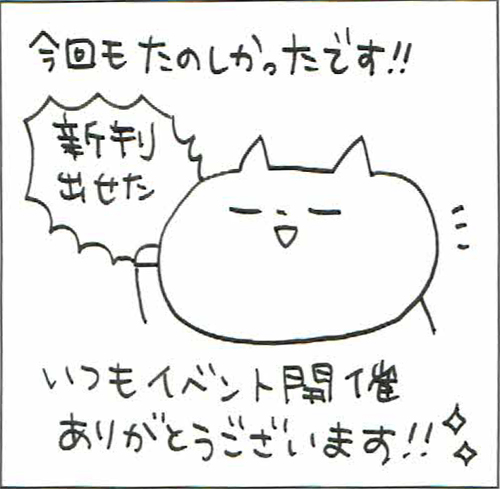 今回もたのしかったです!!
新刊
出せた
いつもイベント開催
ありがとうございます!!